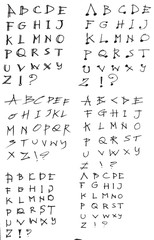 ABCDE
FGHIJ
KLMNO
PQRST
UVWXY
Z!?
ABCDE
FGHIJ
KLMNO
PQRST
UVWXY
Z!?
ABCDEF
GHIJKL
MNOPQR
STUVWY
XZ!?
ABCDEF
GHIJKL
MNOPQR
STUVWY
XZ!?
ABCDE
FGHIJ
KLMNO
PQRST
UVWXY
Z!?
ABCDE
FGHIJ
KLMNO
PQRST
UVWXY
Z!?